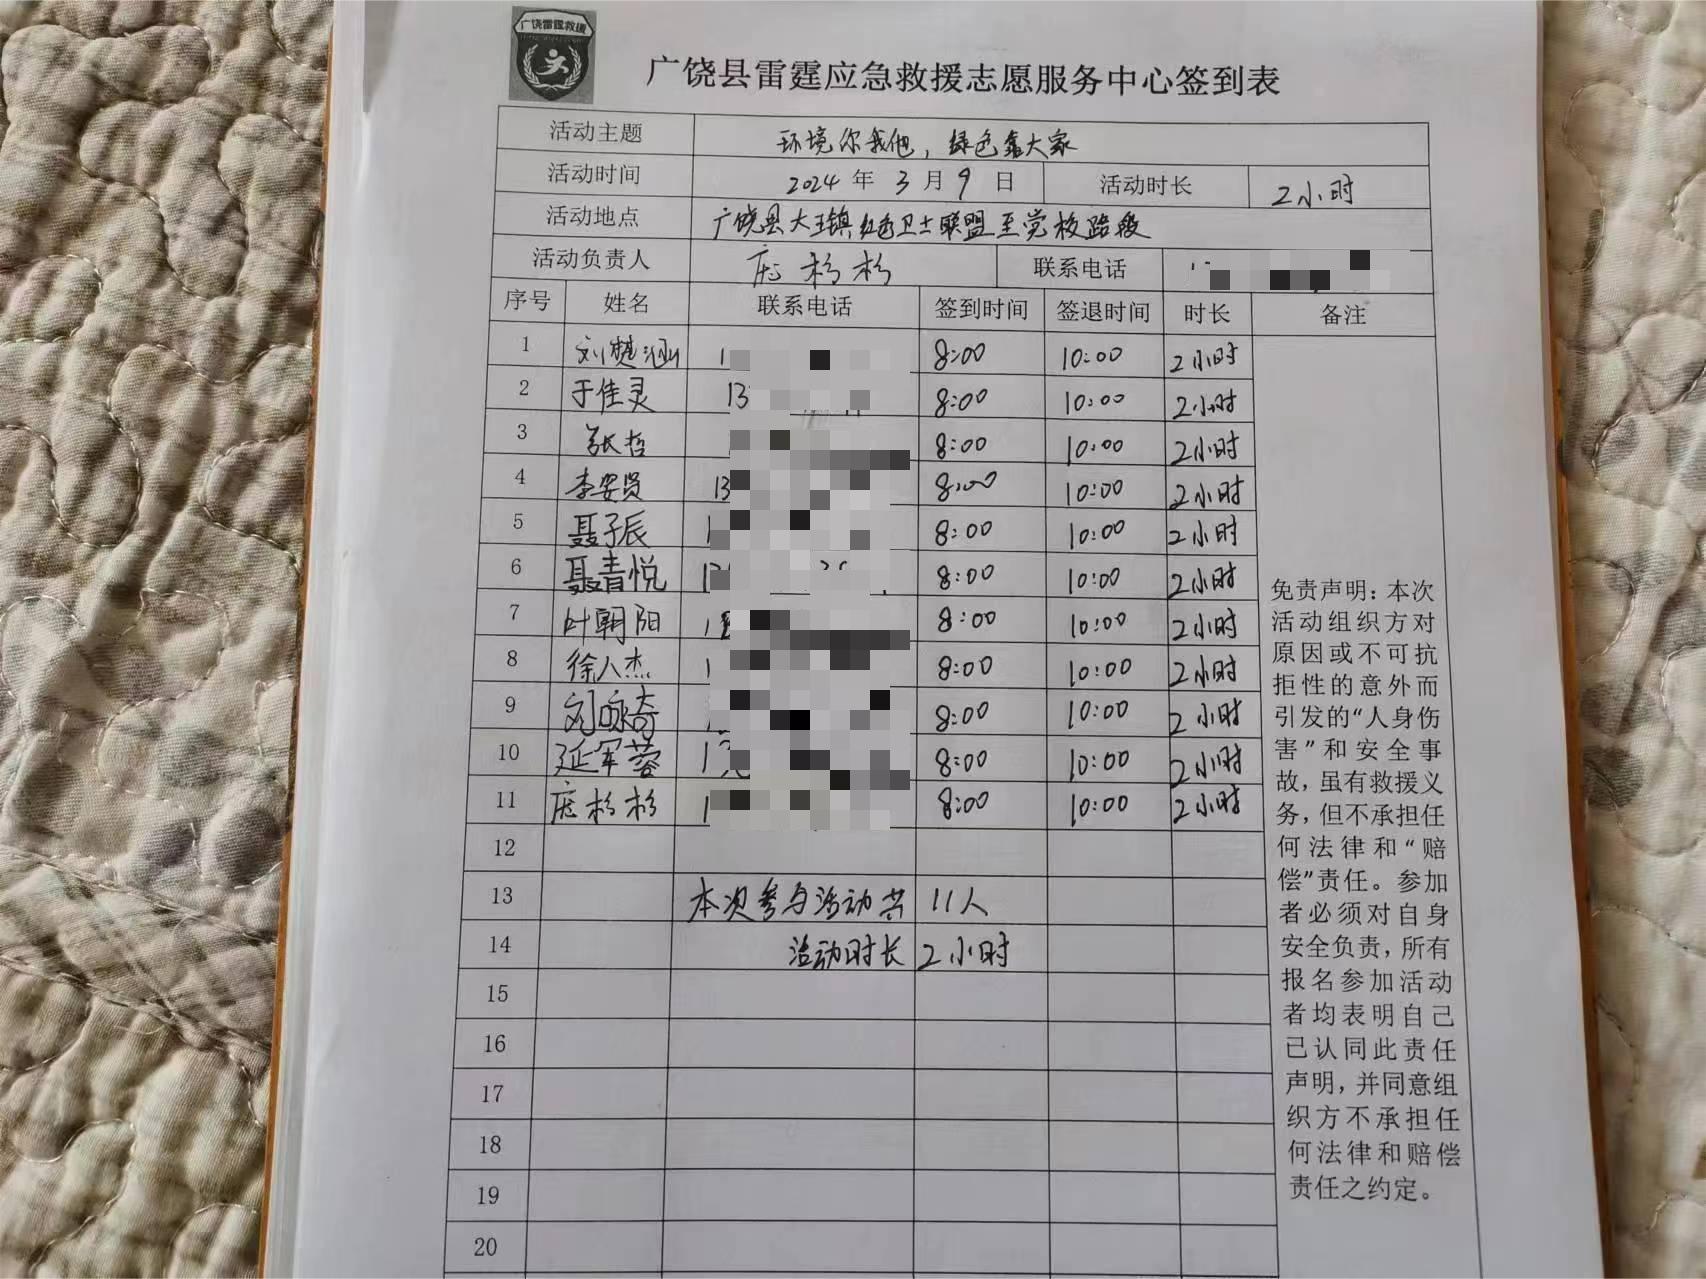 广饶雷霆救援
广饶县雷霆应急救援志愿服务中心签到表
活动主题 环境你我他，绿色鑫大家
活动时间 2024 年 3 月 9 日 活动时长 2小时
活动地点 广饶县大王镇红色卫士联盟至党校路段
活动负责人 庞杉杉 联系电话
序号 姓名 联系电话 签到时间 签退时间 时长 备注
1 刘楚涵 1 8:00 10:00 2小时
2 于佳灵 13 8:00 10:00 2小时
3 张哲 8:00 10:00 2小时
4 李安贤 13 8:00 10:00 2小时
5 聂子辰 1 8:00 10:00 2小时
6 聂青悦 8:00 10:00 2小时
7 叶朝阳 1 8:00 10:00 2小时
8 徐人杰 1 8:00 10:00 2小时
9 刘咏奇 8:00 10:00 2小时
10 延军蓉 1 8:00 10:00 2小时
11 庞杉杉 1 8:00 10:00 2小时
12
13 本次参与活动共 11人
14 活动时长 2小时
15
16
17
18
19
20
免责声明：本次
活动组织方对
原因或不可抗
拒性的意外而
引发的“人身伤
害”和安全事
故，虽有救援义
务，但不承担任
何法律和“赔
偿”责任。参加
者必须对自身
安全负责，所有
报名参加活动
者均表明自己
已认同此责任
声明，并同意组
织方不承担任
何法律和赔偿
责任之约定。